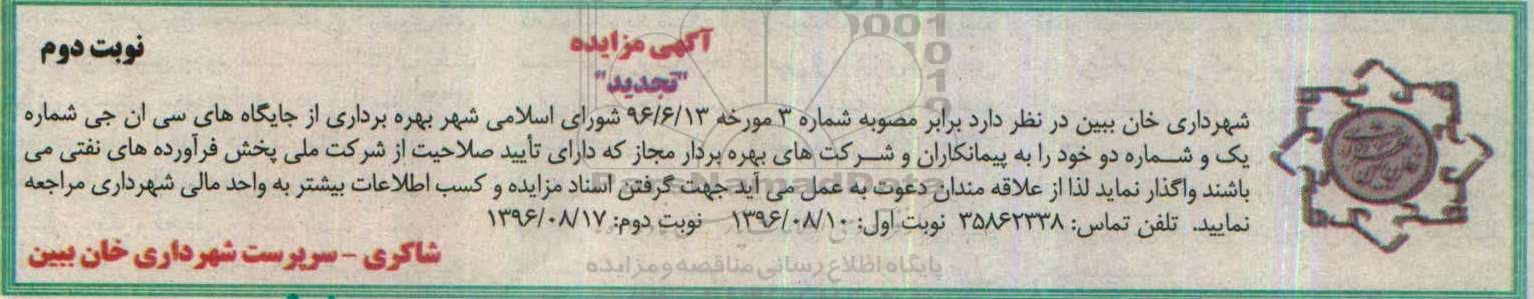 آگهی مزایده
"تجدید"
نوبت دوم
شهرداری خان ببین در نظر دارد برابر مصوبه شماره ۳ مورخه ۹۶/۶/۱۳ شورای اسلامی شهر بهره برداری از جایگاه های سی ان جی شماره
یک و شماره دو خود را به پیمانکاران و شرکت های بهره بردار مجاز که دارای تأیید صلاحیت از شرکت ملی پخش فرآورده های نفتی می
باشند واگذار نماید لذا از علاقه مندان دعوت به عمل می آید جهت گرفتن اسناد مزایده و کسب اطلاعات بیشتر به واحد مالی شهرداری مراجعه
نمایید. تلفن تماس: ۳۵۸۶۲۳۳۸ نوبت اول: ۱۳۹۶/۰۸/۱۰ نوبت دوم: ۱۳۹۶/۰۸/۱۷
شاکری - سرپرست شهرداری خان ببین
ParsNamadData
پایگاه اطلاع رسانی مناقصه و مزایده